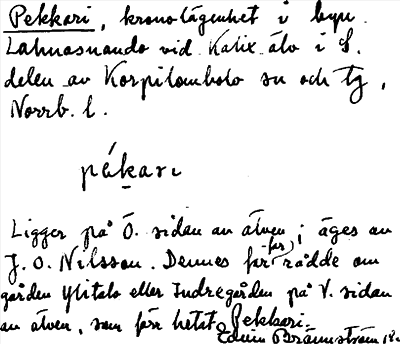 Pekkari, kronolägenhet i byn
Lahnasuando vid Kalix älv i S.
delen av Korpilombolo sn och tg,
Norrb. l.
pékari
Ligger på Ö. sidan av älven; äges av
J. O. Nilsson. Dennes far (far) rådde om
gården Ylitalo eller Indregården på V. sidan
av älven, som förr hetat Pekkari.
Edvin Brännström